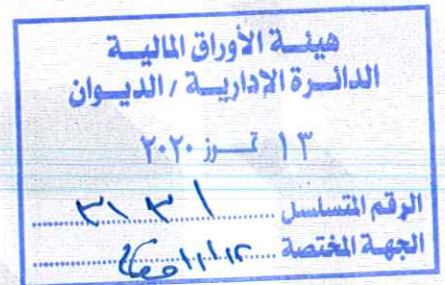 هيئة الأوراق المالية
الدائرة الإدارية / الديوان
١٣ تموز ٢٠٢٠
الرقم المتسلسل ٣١٣١
الجهة المختصة